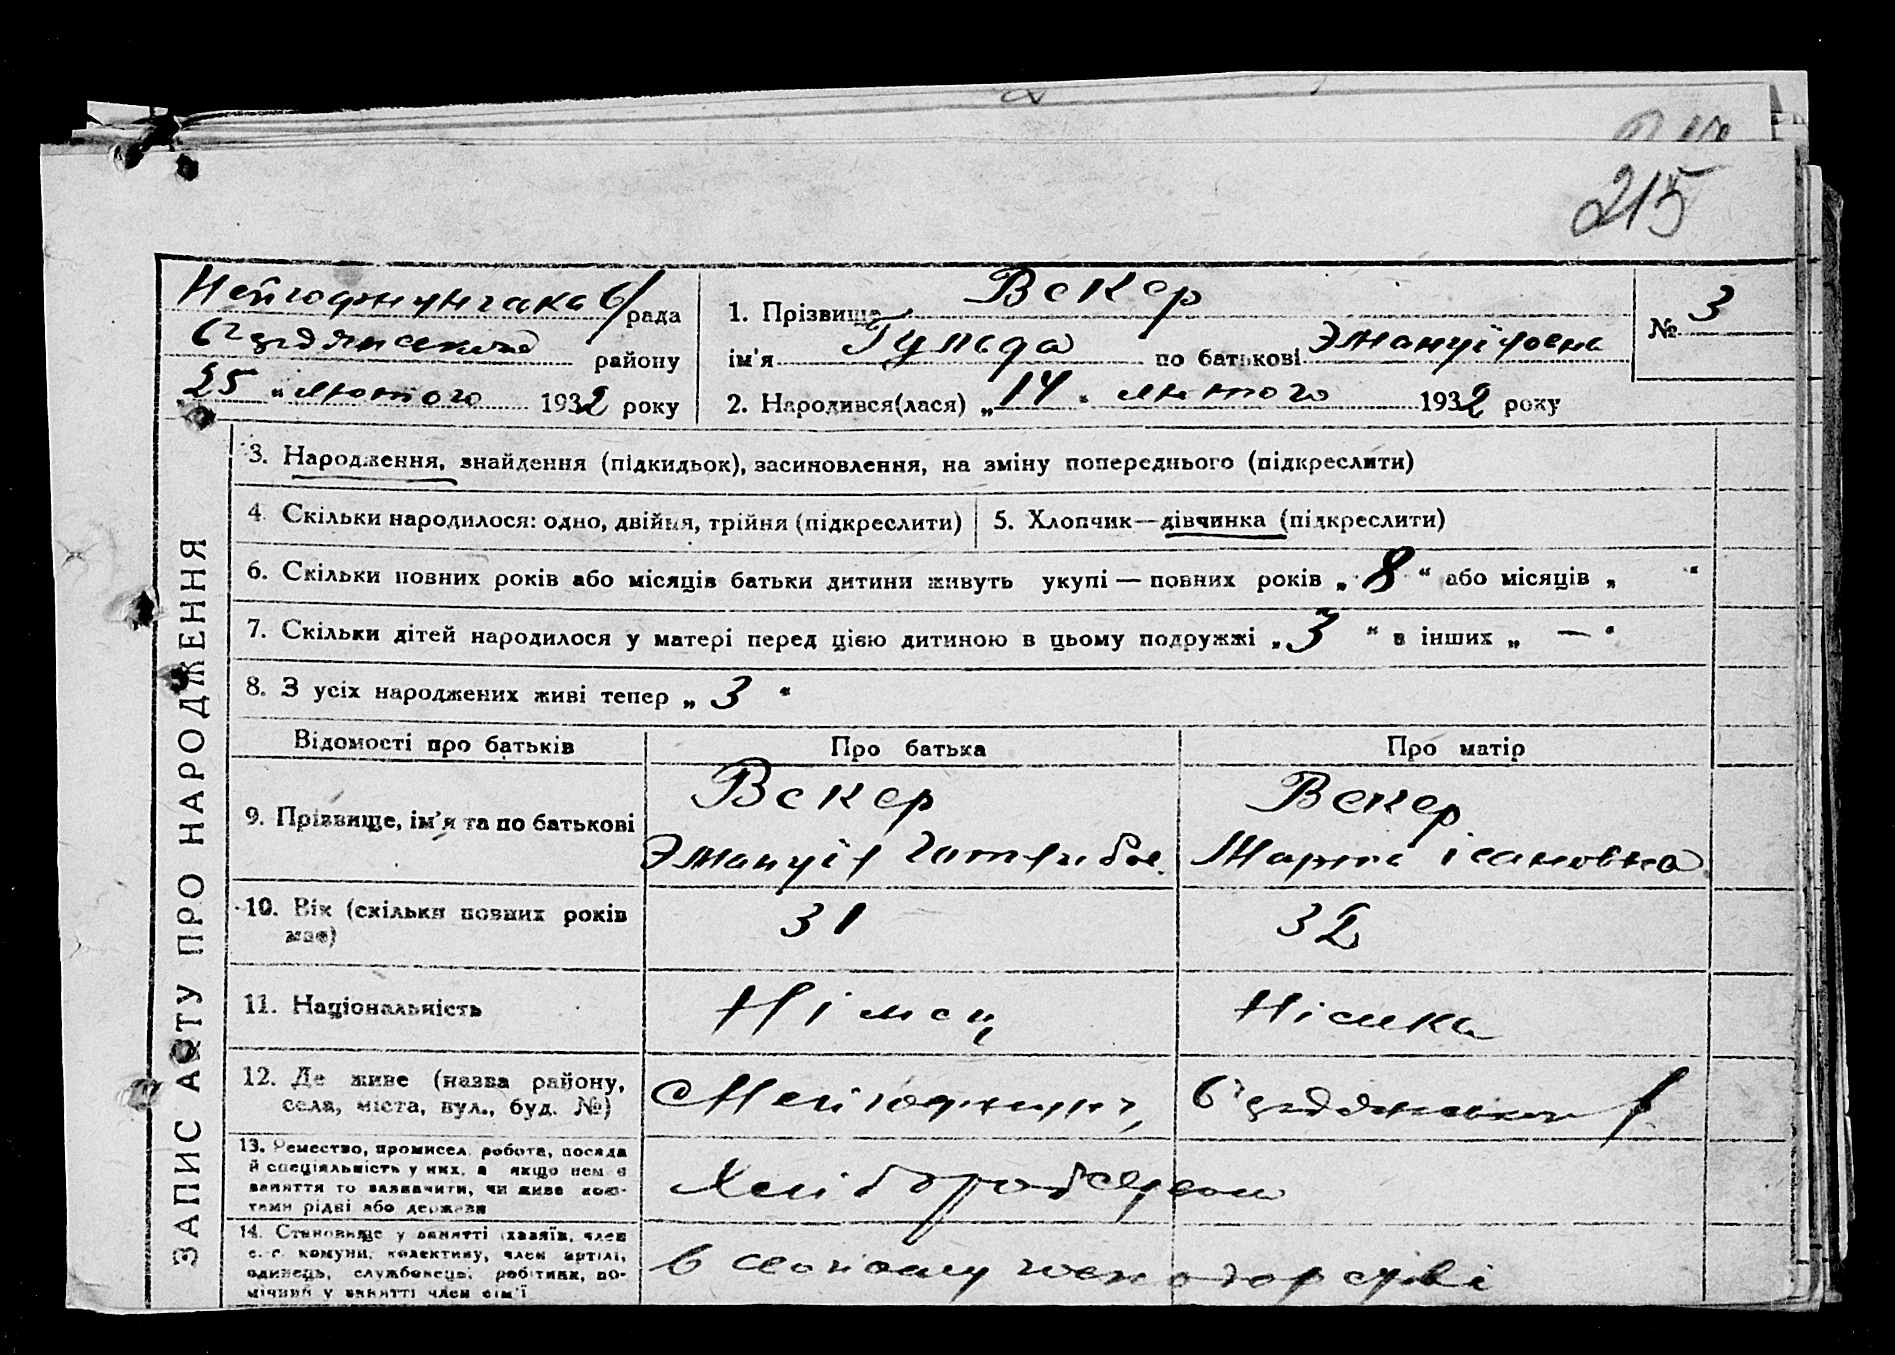 215
Нейгофнунгська с/рада
Бердянського району
„25“ лютого 1932 року
1. Прізвище Векер
ім'я Гульда по батькові Эмануїловна
№ 3
2. Народився(лася) „14“ лютого 1932 року
ЗАПИС АКТУ ПРО НАРОДЖЕННЯ
3. Народження, знайдення (підкидьок), засиновлення, на зміну попереднього (підкреслити)
4. Скільки народилося: одно, двійня, трійня (підкреслити)
5. Хлопчик—дівчинка (підкреслити)
6. Скільки повних років або місяців батьки дитини живуть укупі — повних років „8“ або місяців „ “
7. Скільки дітей народилося у матері перед цією дитиною в цьому подружжі „3“ в інших „—“
8. З усіх народжених живі тепер „3“
Відомості про батьків
Про батька
Про матір
9. Прізвище, ім'я та по батькові
Векер
Эмануїл Готлибов.
Векер
Марта
10. Вік (скільки повних років
має)
31
32
11. Національність
Німець
Німка
12. Де живе (назва району,
села, міста, вул., буд. №)
Нейгофнунг,
Бердянського р.
13. Ремество, промисел, робота, посада
й спеціяльність у них, а якщо нема
заняття то зазначити, чи живе кош-
тами рідні або держави
Хлібороборством
14. Становище у занятті (хазяїн, член
с.-г. комуни, колективу, член артілі,
одинець, службовець, робітник, по-
мічний у занятті член сім'ї
в своному господарстві